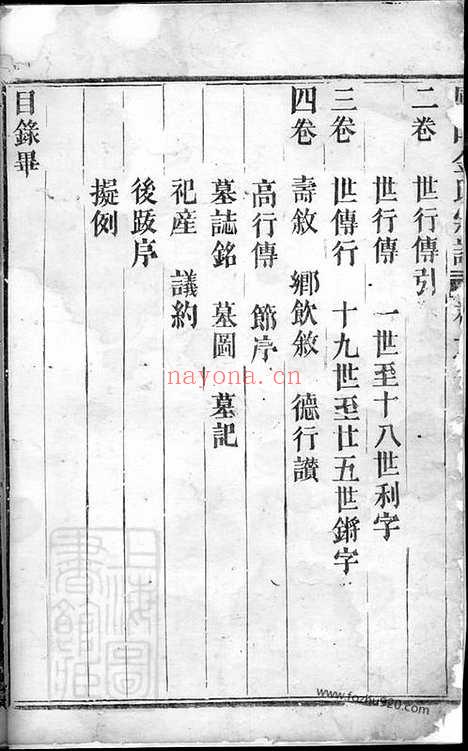 二卷 世行傳引
世行傳 一世至十八世利字
三卷 世傳行 十九世至廿五世鏘字
四卷 壽敘 鄉飲敘 德行讚
高行傳 節序
墓誌銘 墓圖 墓記
祀産 議約
後跋序
擬例
目錄畢
nayona.cn
上海圖書館藏
www.fozhu920.com